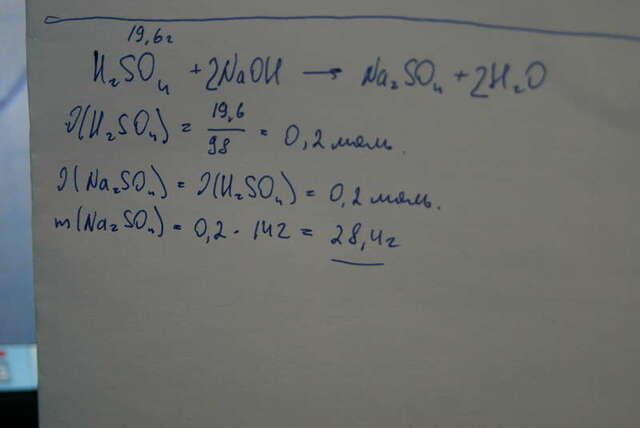 19,6г
H₂SO₄ + 2NaOH → Na₂SO₄ + 2H₂O
ν(H₂SO₄) = 19,6/98 = 0,2 моль.
ν(Na₂SO₄) = ν(H₂SO₄) = 0,2 моль.
m(Na₂SO₄) = 0,2 · 142 = 28,4г